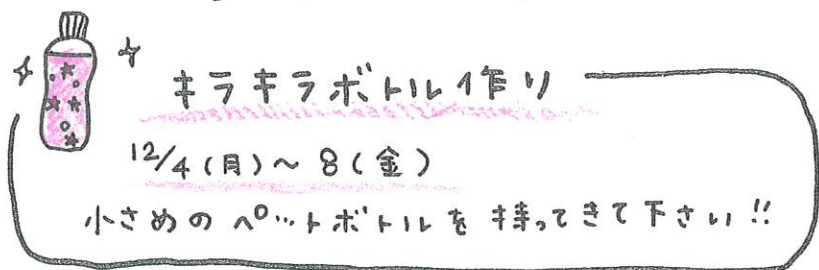 キラキラボトル作り
12/4(月)~8(金)
小さめのペットボトルを持ってきて下さい!!